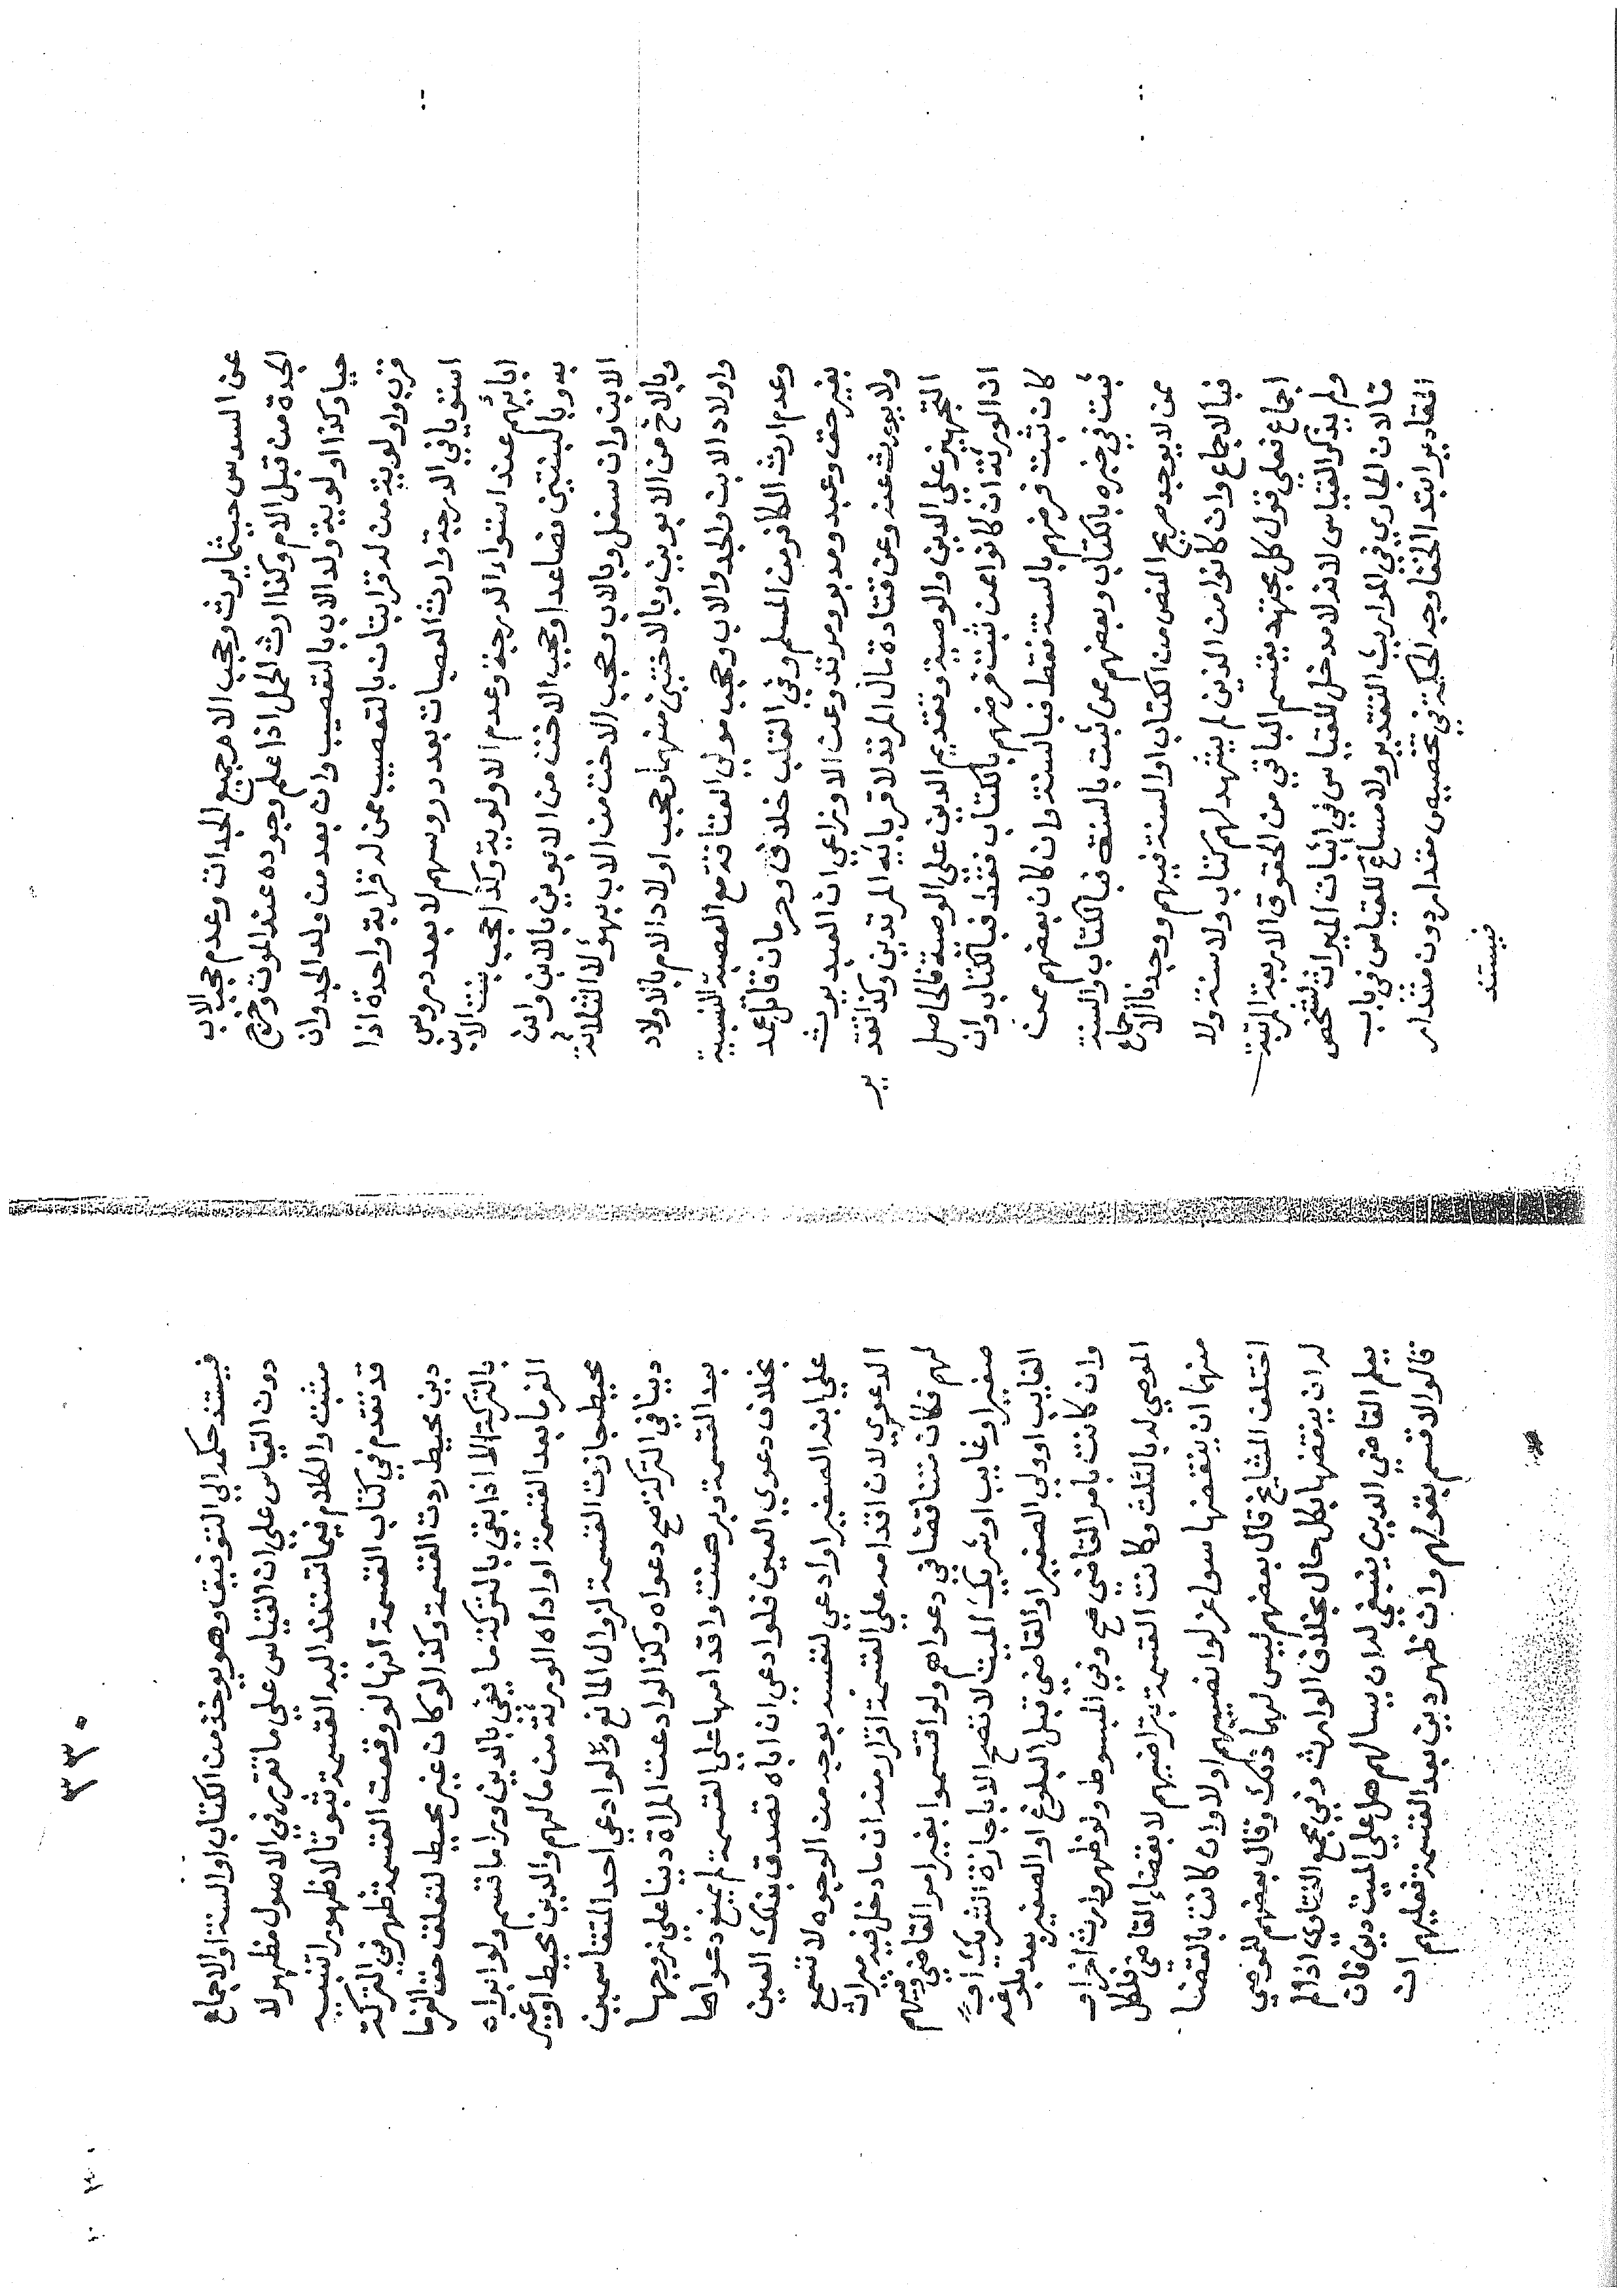 عن السدس حيثما يرث وحجب الام جميع الجدات وعدم حجب الاب
الجدة من قبل الام وكذا ارث الحمل اذا علم وجوده عند الموت وخرج
حيا وكذا اولوية ولد الاب بالتعصيب وان بعد من ولد الجد وان
قرب واولوية من له قرابتان بالتعصيب ممن له قرابة واحدة اذا
استويا في الدرجة وارث العصبات بعدد روسهم لا بعدد روس
ابايهم عند استواء الدرجة وعدم الاولوية وكذا حجب بنت الابن
به وبالبنتين فصاعدا وحجب الاخت من الابوين بالابن وابن
الابن وان سفل وبالاب وحجب الاخت من الاب بهولاء الثلاثة
وبالاخ من الابوين وبالاختين منهما وحجب اولاد الام بالاولاد
واولاد الابن والجد والاب وحجب مولي العتاقة مع العصبة النسبية
وعدم ارث الكافر من المسلم وفي القلب خلاف وحرمان قاتل عمد
بغير حق وعبد ومدبر ومرتد وعن الاوزاعي ان العبد يرث
ولا يورث عنه وعن قتادة مال المرتد لاقربايه المرتدين وكذا تقديم
التجهيز علي الدين والوصية وتقديم الدين علي الوصية فالحاصل
ان الورثة ان كانوا ممن ثبت فرضهم بالكتاب فقط فبالكتاب وان
كان ثبت فرضهم بالسنة فقط فبالسنة وان كان بعضهم ممن
ثبت في خبره بالكتاب وبعضهم ممن ثبت بالسنة فبالكتاب والسنة
ممن لا يوجد صريح النص من الكتاب او السنة فيهم ووجدنا الاجماع
فبالاجماع وان كانوا من الذين لم يشهد لهم كتاب ولا سنة ولا
اجماع فعلي قول كل مجتهد يقسم الباقي من الحقوق الاربعة المرتبة
ولم يذكر القياس لانه لا مدخل للقياس في اثبات الميراث لشخص
قال لان الجاري في المواريث التقدير ولا مساغ للقياس في باب
المقادير ابتدا لخفا وجه الحكمة في تخصيص مقدار دون مقدار
فيستند
٣٣٠
فيستند حكمه الي التوقيف وهو يوخذ من الكتاب او السنة او الاجماع
دون القياس علي ان القياس علي ما تقرر في الاصول مظهر لا
مثبت والكلام فيما تستند اليه القسمة ثبوتا لا ظهورا تنبيه
قد تقدم في كتاب القسمة انها لو وقعت القسمة فظهر في التركة
دين محيط ردت القسمة وكذا لو كان غير محيط لتعلق حق الغرما
بالتركة الا اذا بقي بالتركة ما يفي بالدين ورا ما قسم ولو ابراه
الغرما بعد القسمة او اداه الورثة من مالهم والدين محيط او غير
محيط جازت القسمة لزوال المانع ولو ادعي احد المتقاسمين
دينا في التركة صح دعواه وكذا لو ادعت المراة دينا علي زوجها
بعد القسمة وبرهنت واقدامها علي القسمة لم يمنع دعواها
بخلاف دعوي العين فلو ادعي ان اباه تصدق بتلك العين
علي ابنه الصغير او ادعي لنفسه بوجه من الوجوه لا تسمع
الدعوي لان اقدامه علي القسمة اقرار منه ان ما دخل فيه ميراث
لهم فكان متناقضا في دعواهم ولو اقتسموا بغير امر القاضي وفيهم
صغير او غايب او شريك الميت لا تصح الا باجازة الشريك او
الغايب او ولي الصغير او القاضي قبل البلوغ او الصغير بعد بلوغه
وان كانت بامر القاضي صح وفي المبسوط ولو ظهر وارث اخر او
الموصي له بالثلث وكانت القسمة بتراضيهم لا بقضاء القاضي فلكل
منهما ان ينقضها سوا عزلوا نصيبهم او لا وان كانت بالقضا
اختلف المشايخ قال بعضهم ليس لهما ذلك وقال بعضهم للموصي
له ان ينقضها بكل حال بخلاف الوارث وفي مجمع الفتاوي اذا لم
يعلم القاضي الدين ينبغي له ان يسالهم هل علي الميت دين فان
قالوا لا قسم بقولهم وان ظهر دين بعد القسمة فعليهم ان